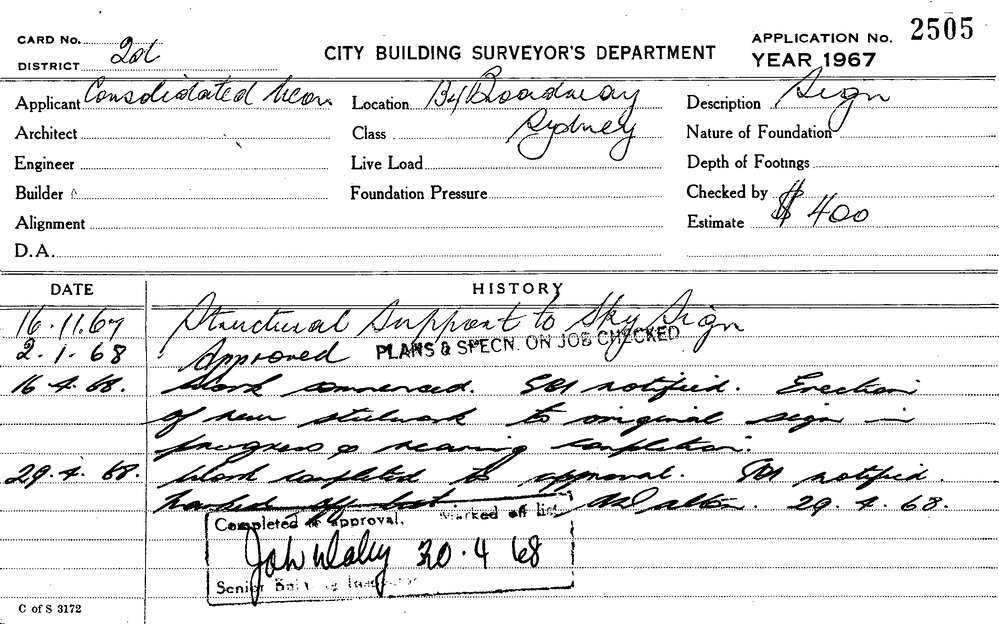 CARD No.
DISTRICT 2nd
CITY BUILDING SURVEYOR'S DEPARTMENT
APPLICATION No. 2505
YEAR 1967
Applicant Consolidated Neon. Location Broadway Description Sign
Architect Class Sydney Nature of Foundation
Engineer Live Load Depth of Footings
Builder Foundation Pressure Checked by
Alignment Estimate $ 400
D.A.
DATE HISTORY
16.11.67 Structural Support to Sky Sign
2.1.68 Approved PLANS & SPECN. ON JOB CHECKED
16.4.68. Work commenced. notified. Erection
of new steelwork to original sign in
progress & nearing completion.
29.4.68. Work completed to approval. notified.
marked off list. 29.4.68.
Completed to approval. Marked off list
John 30.4 68
Senior Building Inspector
C of S 3172